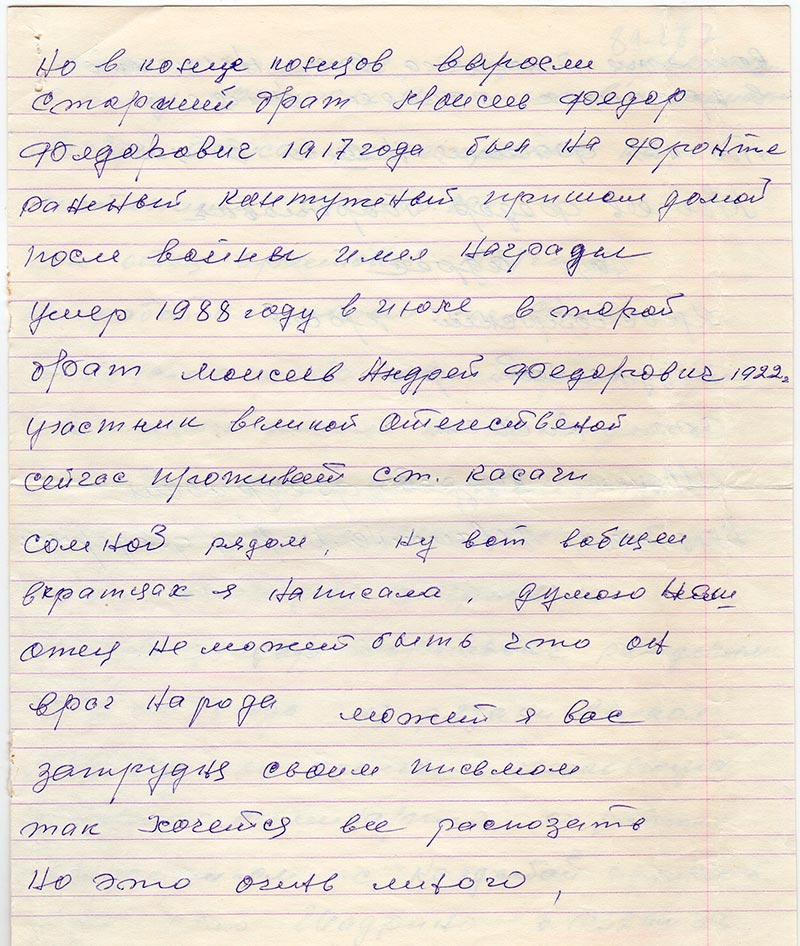 Но в конце концов выросли
Старший брат Моисеев Федор
Фядорович 1917 года был на фронте
раненый кантуженый пришол домой
после войны имея награды
умер 1988 году в июне в торой
брат Моисеев Андрей Федорович 1922г
участник великой Отечественой
сейчас проживает ст. касачи
сомной рядом, ну вот вобщем
вкратцах я написала, думаю наш
отец не может быть что он
враг народа может я вас
затрудня своим письмом
так хочется все расказать
но это очень много,